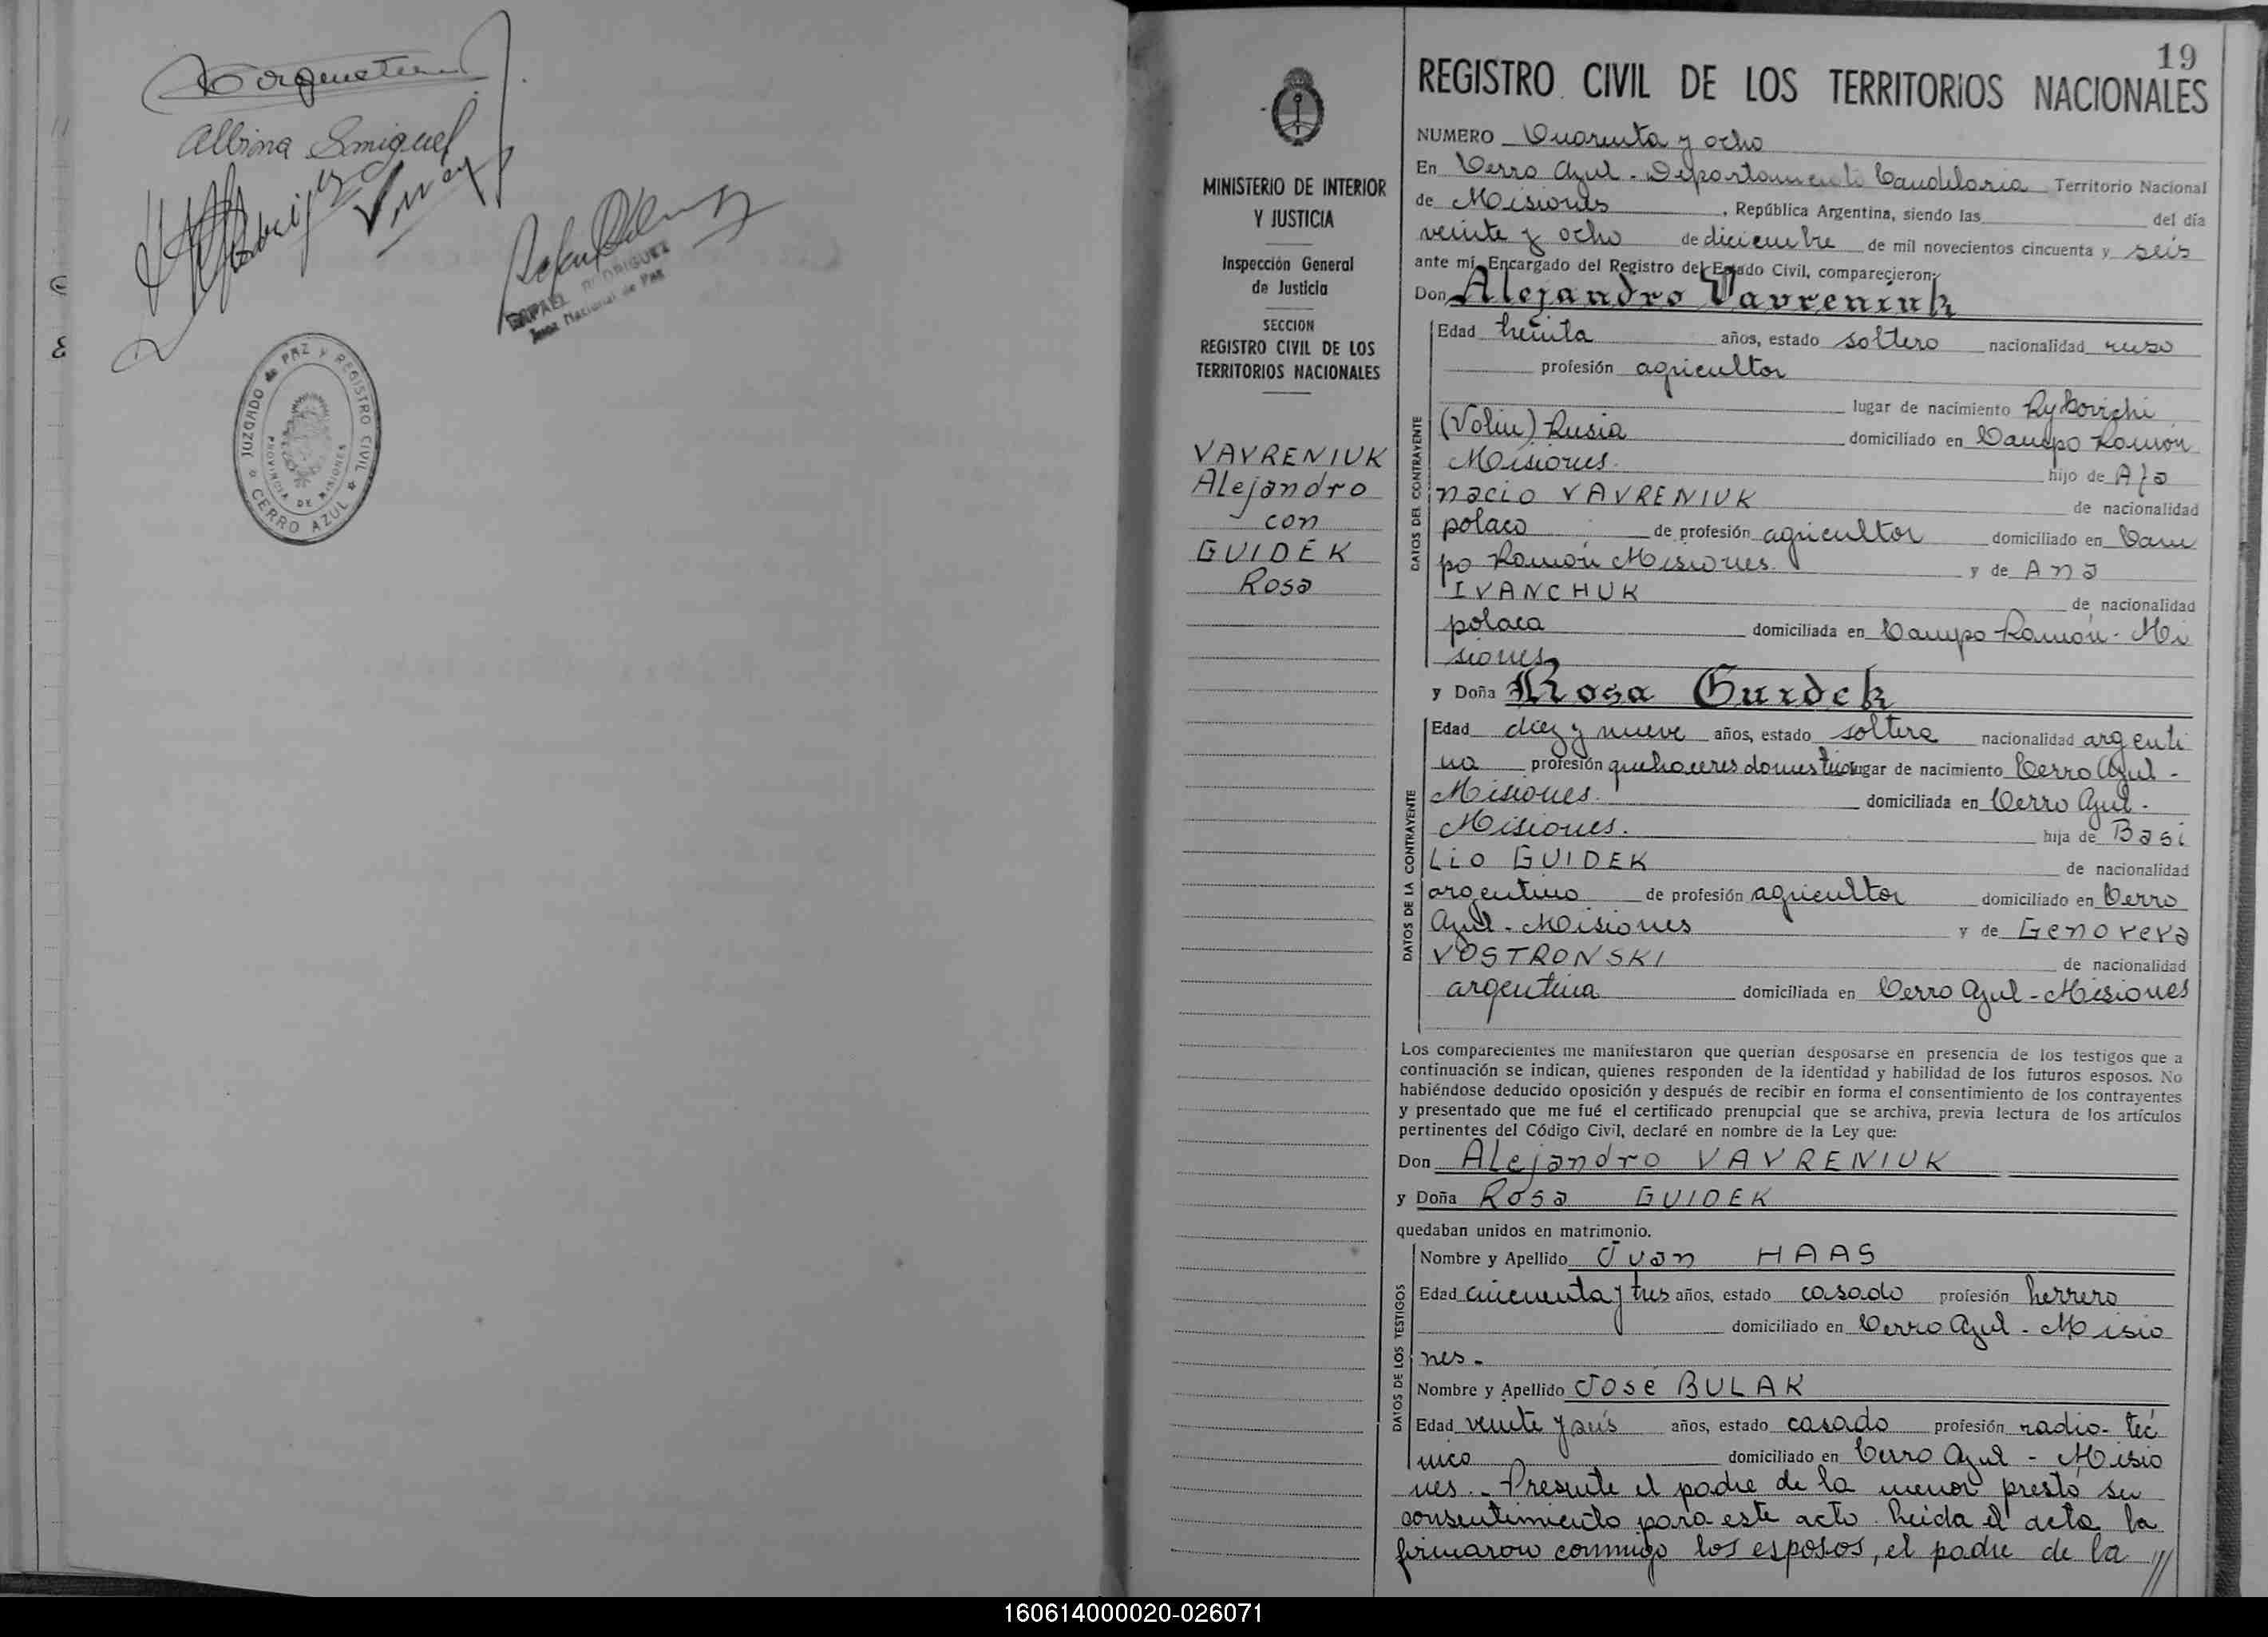 Albina Smiguel
RAFAEL RODRIGUEZ
Juez Nacional de Paz
JUZGADO de PAZ y REGISTRO CIVIL
PROVINCIA DE MISIONES
CERRO AZUL
19
REGISTRO CIVIL DE LOS TERRITORIOS NACIONALES
MINISTERIO DE INTERIOR
Y JUSTICIA
Inspección General
de Justicia
SECCION
REGISTRO CIVIL DE LOS
TERRITORIOS NACIONALES
VAVRENIUK
Alejandro
con
GUIDEK
Rosa
NUMERO Cuarenta y ocho
En Cerro Azul - Departamento Candelaria Territorio Nacional
de Misiones, República Argentina, siendo las del día
veinte y ocho de diciembre de mil novecientos cincuenta y seis
ante mí, Encargado del Registro del Estado Civil, comparecieron:
Don Alejandro Vavreniuk
DATOS DEL CONTRAYENTE
Edad treinta años, estado soltero nacionalidad ruso
profesión agricultor
lugar de nacimiento Rykovichi
(Volin) Rusia domiciliado en Campo Ramón
Misiones. hijo de Afa
nacio VAVRENIUK de nacionalidad
polaco de profesión agricultor domiciliado en Cam
po Ramón Misiones. y de Ana
IVANCHUK de nacionalidad
polaca domiciliada en Campo Ramón - Mi
siones
y Doña Rosa Guidek
DATOS DE LA CONTRAYENTE
Edad diez y nueve años, estado soltera nacionalidad argenti
na profesión quehaceres domesticos lugar de nacimiento Cerro Azul -
Misiones. domiciliada en Cerro Azul -
Misiones. hija de Basi
Lio GUIDEK de nacionalidad
argentino de profesión agricultor domiciliado en Cerro
Azul - Misiones y de Genoveva
VOSTRONSKI de nacionalidad
argentina domiciliada en Cerro Azul - Misiones
Los comparecientes me manifestaron que querían desposarse en presencia de los testigos que a
continuación se indican, quienes responden de la identidad y habilidad de los futuros esposos. No
habiéndose deducido oposición y después de recibir en forma el consentimiento de los contrayentes
y presentado que me fué el certificado prenupcial que se archiva, previa lectura de los artículos
pertinentes del Código Civil, declaré en nombre de la Ley que:
Don Alejandro VAVRENIUK
y Doña Rosa GUIDEK
quedaban unidos en matrimonio.
DATOS DE LOS TESTIGOS
Nombre y Apellido Juan HAAS
Edad cincuenta y tres años, estado casado profesión herrero
domiciliado en Cerro Azul - Misio
nes -
Nombre y Apellido José BULAK
Edad veinte y seis años, estado casado profesión radio-téc
nico domiciliado en Cerro Azul - Misio
nes.- Presente el padre de la menor prestó su
consentimiento para este acto. Leída el acta la
firmaron conmigo los esposos, el padre de la //
160614000020-026071